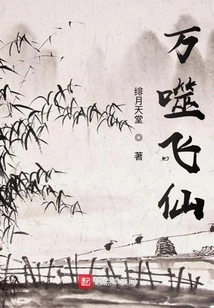 万噬飞仙
绯月天堂◎著